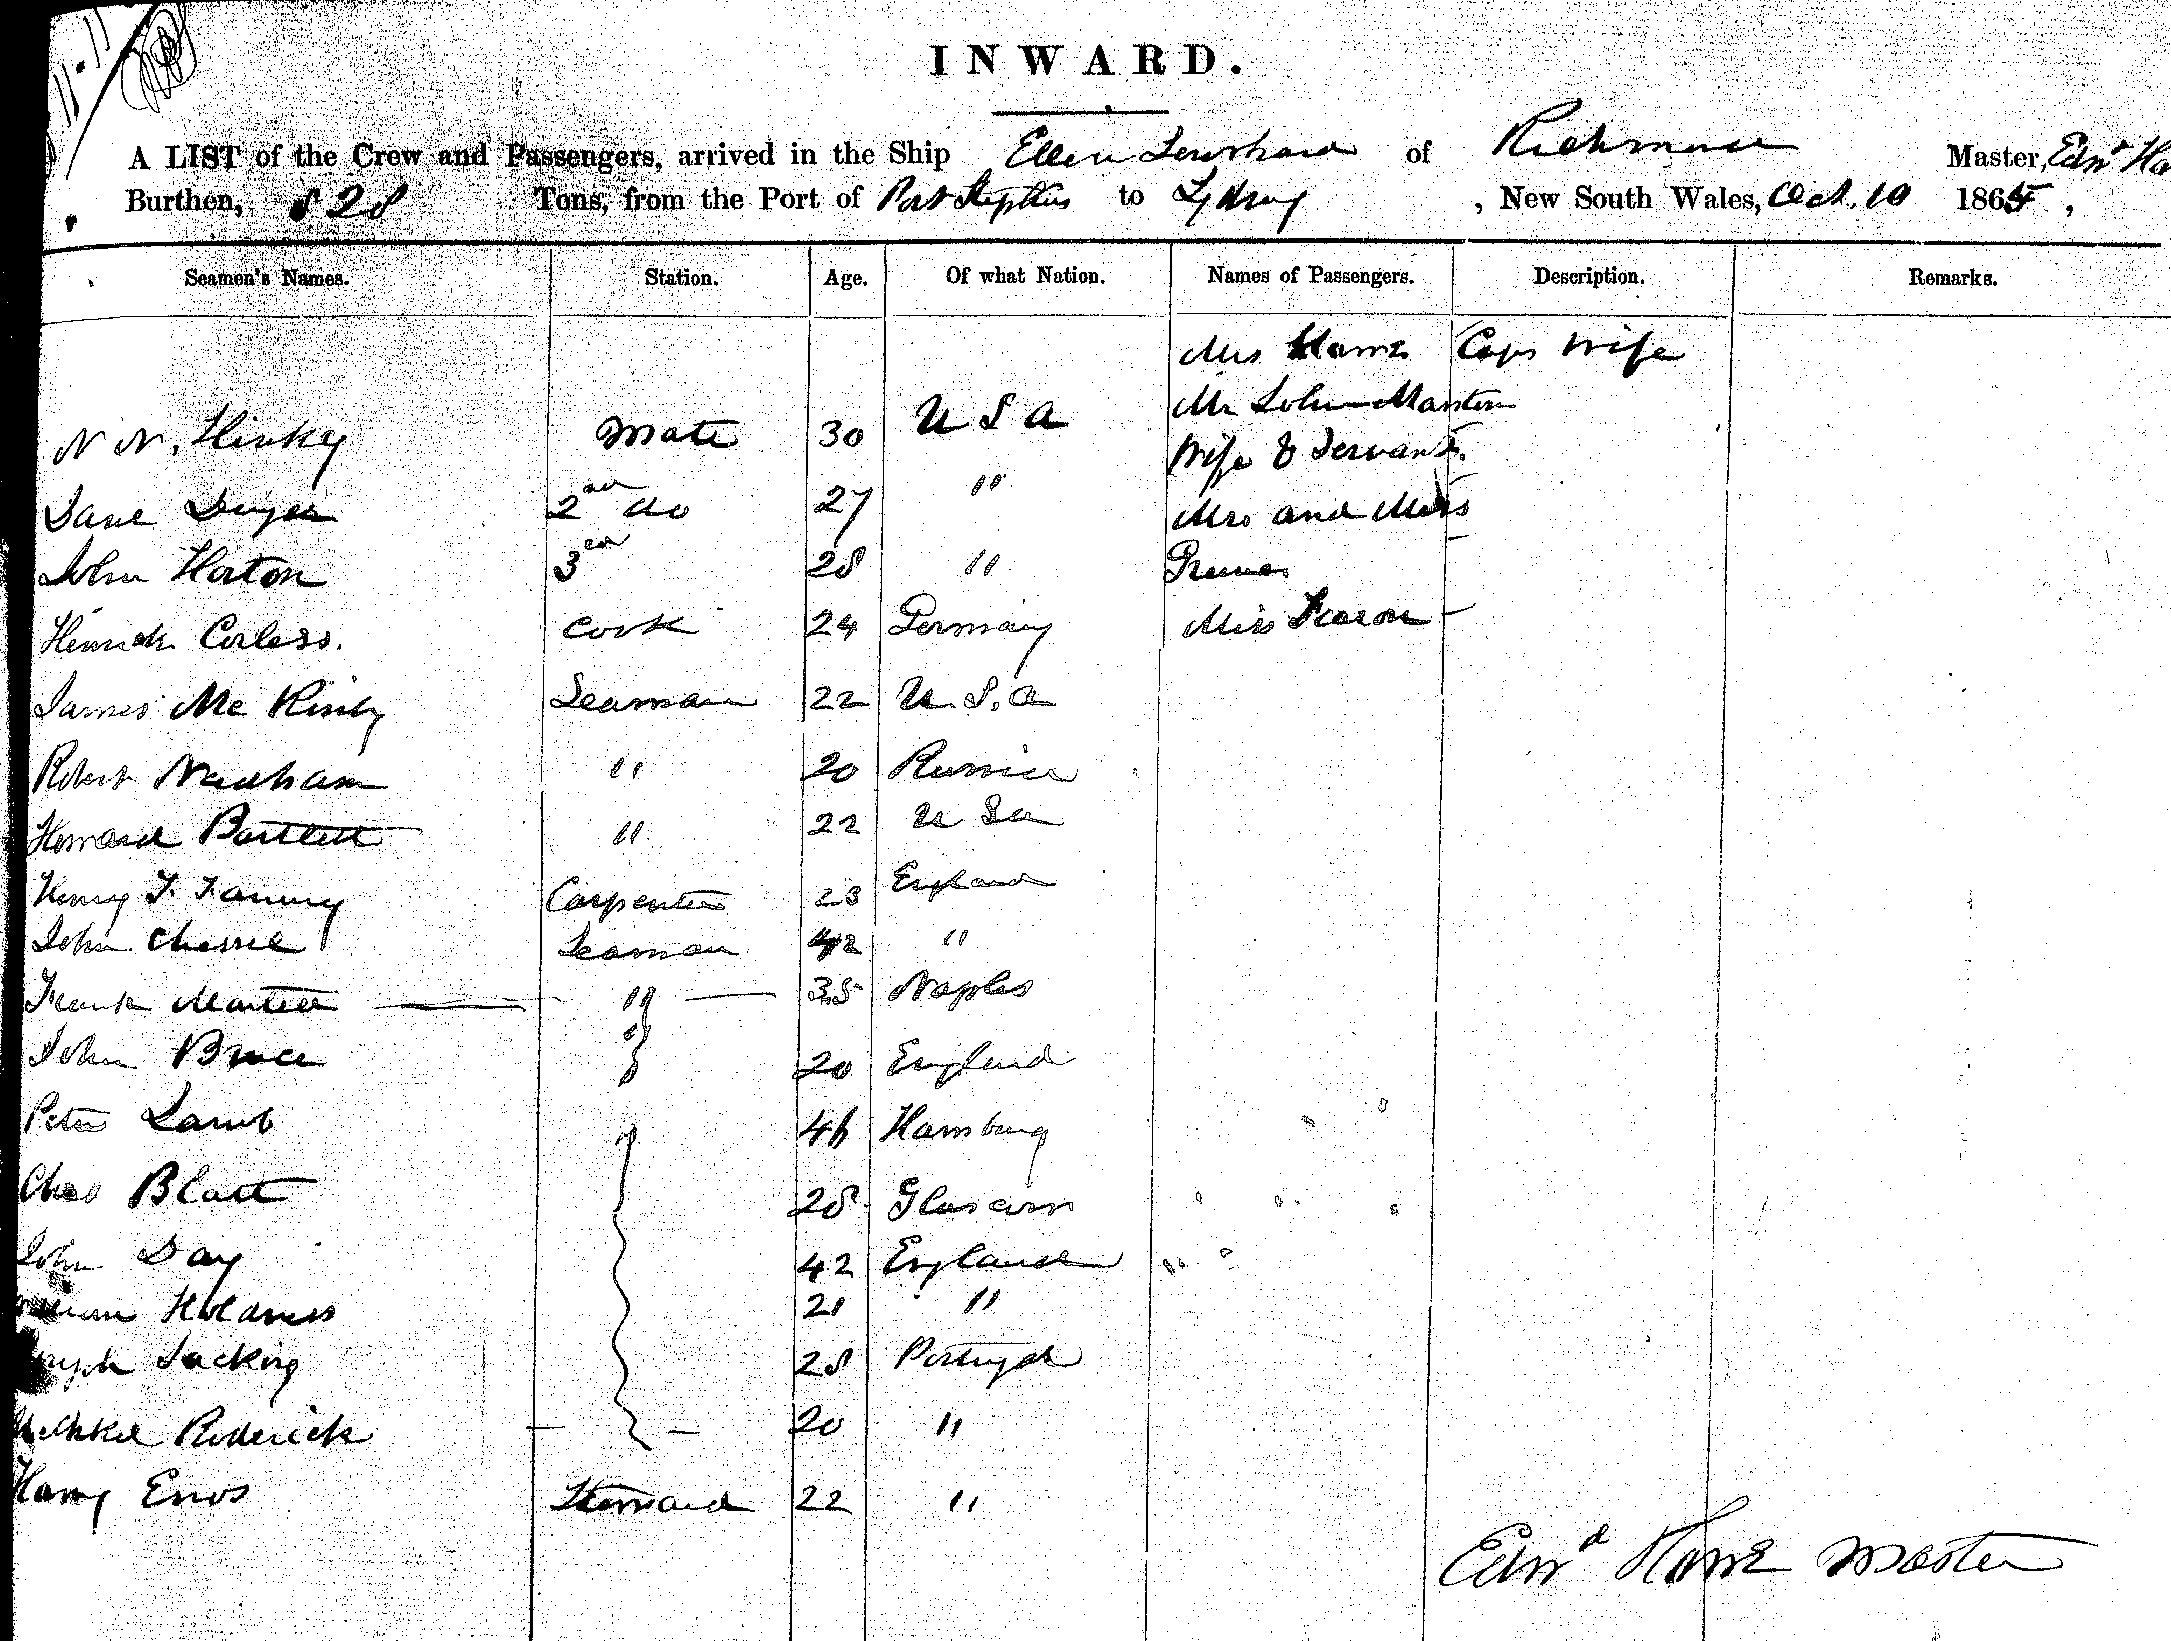 INWARD.
A LIST of the Crew and Passengers, arrived in the Ship Ellen of Richmond Master, Edwd Ha
Burthen, 828 Tons, from the Port of Port Stephens to Sydney, New South Wales, Oct. 10 1865,
Seamen's Names. Station. Age. Of what Nation. Names of Passengers. Description. Remarks.
Mrs Howe Caps Wife
Mr John Manton
N N. Hinkey Mate 30 U S A Wife & Servant.
Dane 2nd do 27 " Mrs and Miss
John Horton 3rd 28 "
Corless. Cook 24 Germany Miss
James Mc Kinly Seaman 22 U.S.A
Robert " 20 Russia
Howard Bartlett " 22 U Sa
Henry F. Carpenter 23 England
John Seaman 42 "
Frank " 35 Naples
John Bruce " 20 England
Peter Lamb 46 Hamburg
Chas Blatt 28 Glascow
John Day 42 England
21 "
28 Portugal
Roderick 20 "
Harry Enos Steward 22 "
Edwd Howe Master